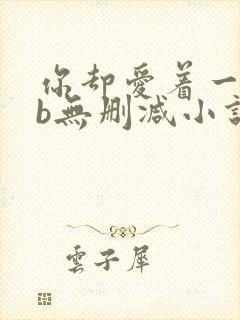 你却愛着一
b無删减小說
雲子犀